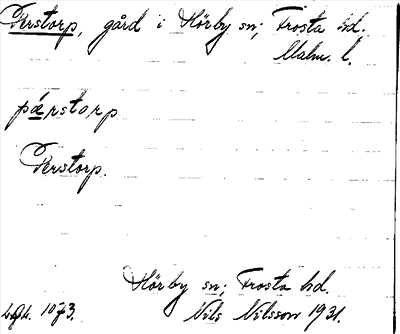 Perstorp, gård i Hörby sn; Frosta hd.
Malm. l.
pǽrstorp
Perstorp.
Hörby sn; Frosta hd.
1073. Nils Nilsson 1931.